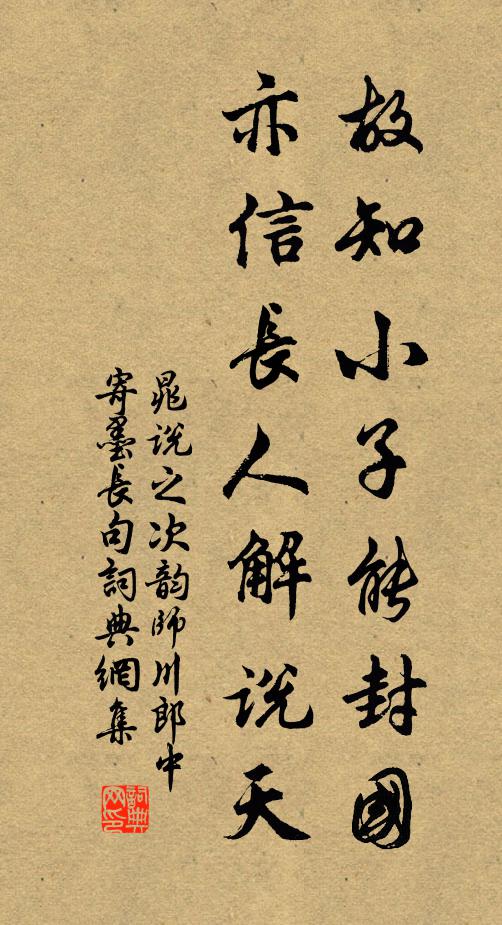 故知小子能封國
亦信長人解說天
晁說之次韵師川郎中
寄墨長句詞典網集
詞典
网印